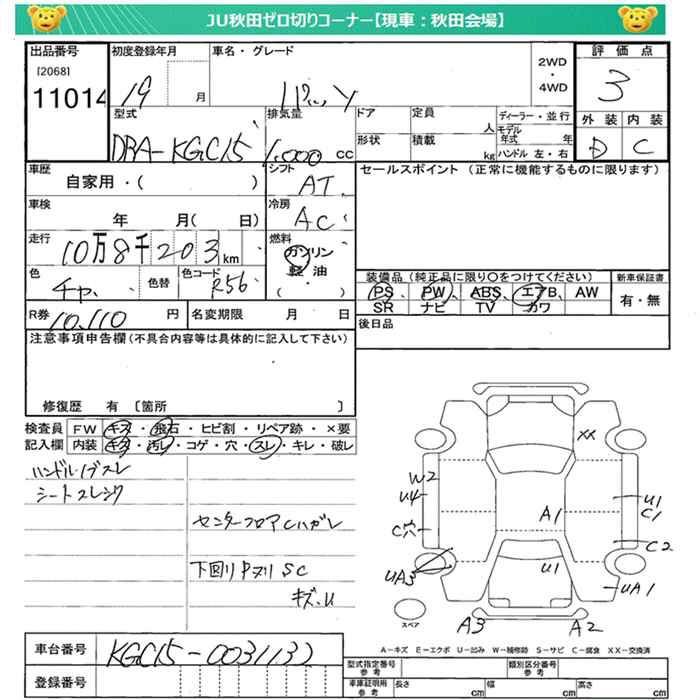 JU秋田ゼロ切りコーナー【現車：秋田会場】
出品番号
[2068]
11014
初度登録年月
19 月
車名・グレード
2WD
・
4WD
評価点
3
外装 内装
D C
型式
DBA-KGC15
排気量
1,000 cc
ドア
定員
人
ディーラー・並行
モデル
年式 年
形状
積載
kg
ハンドル 左・右
車歴
自家用・( )
シフト
AT
セールスポイント (正常に機能するものに限ります)
車検
年 月( 日)
冷房
AC
走行
10万8千203km
燃料
ガソリン
軽油
( )
色
色替
色コード
R56
装備品 (純正品に限り○をつけてください)
新車保証書
PS PW ABS エアB AW
SR ナビ TV カワ
有・無
R券
10,110 円
名変期限 月 日
後日品
注意事項申告欄(不具合内容等は具体的に記入して下さい)
修復歴 有 〔箇所 〕
検査員
記入欄
FW キズ・飛石・ヒビ割・リペア跡・×要
内装 キズ・汚レ・コゲ・穴・スレ・キレ・破レ
シートスレシワ
センターフロアCハガレ
下回り SC
キズ.U
XX
W2
U4
C穴
UA3
A1
U1
U1
C1
C2
UA1
A3
A2
スペア
A－キズ E－エクボ U－凹み W－補修跡 S－サビ C－腐食 XX－交換済
車台番号
KGC15-0031132
登録番号
型式指定番号
参考
類別区分番号
参考
車庫証明用
参考
長さ cm
幅 cm
高さ cm